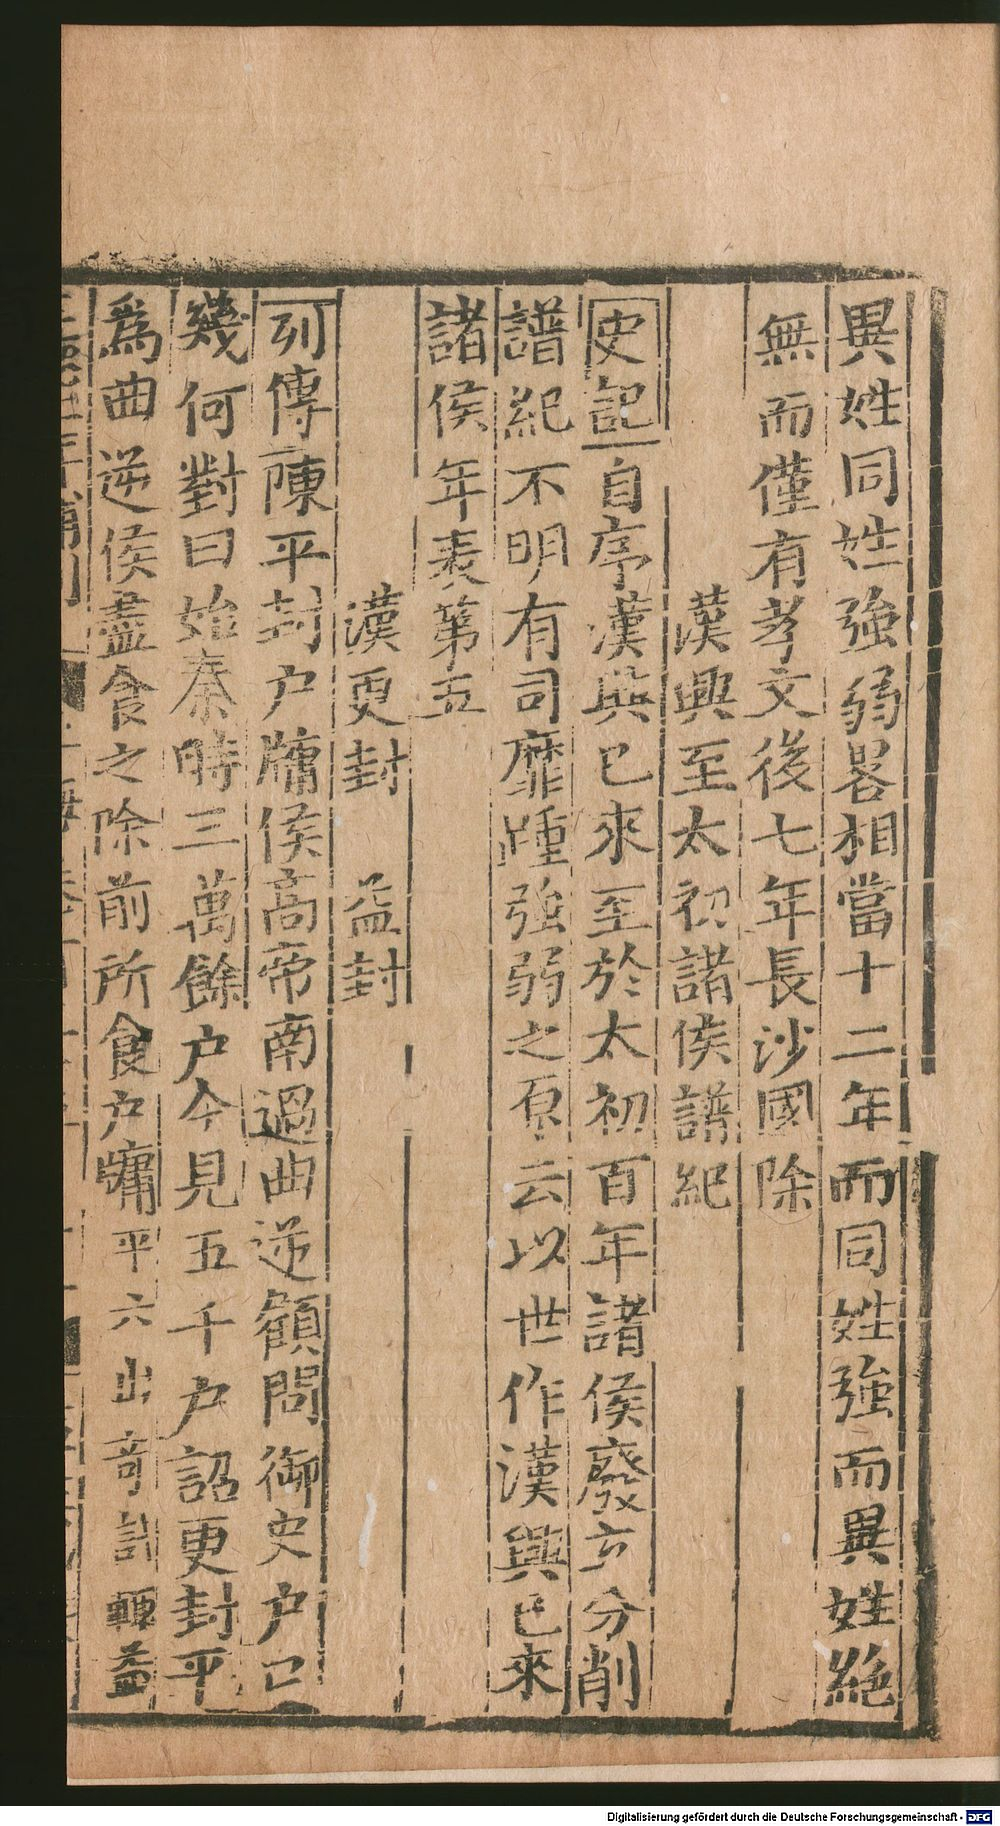 異姓同姓強弱畧相當十二年而同姓強而異姓絶
無而僅有孝文後七年長沙國除
漢興至太初諸侯譜紀
史記自序漢興已來至於太初百年諸侯廢立分削
譜紀不明有司靡踵強弱之原云以世作漢興已來
諸侯年表第五
漢更封 益封
列傳陳平封户牖侯髙帝南過曲逆顧問御史户口
幾何對曰始秦時三萬餘户今見五千户詔更封平
爲曲逆侯盡食之除前所食户牖平六出竒計輒益
Digitalisierung gefördert durch die Deutsche Forschungsgemeinschaft - DFG